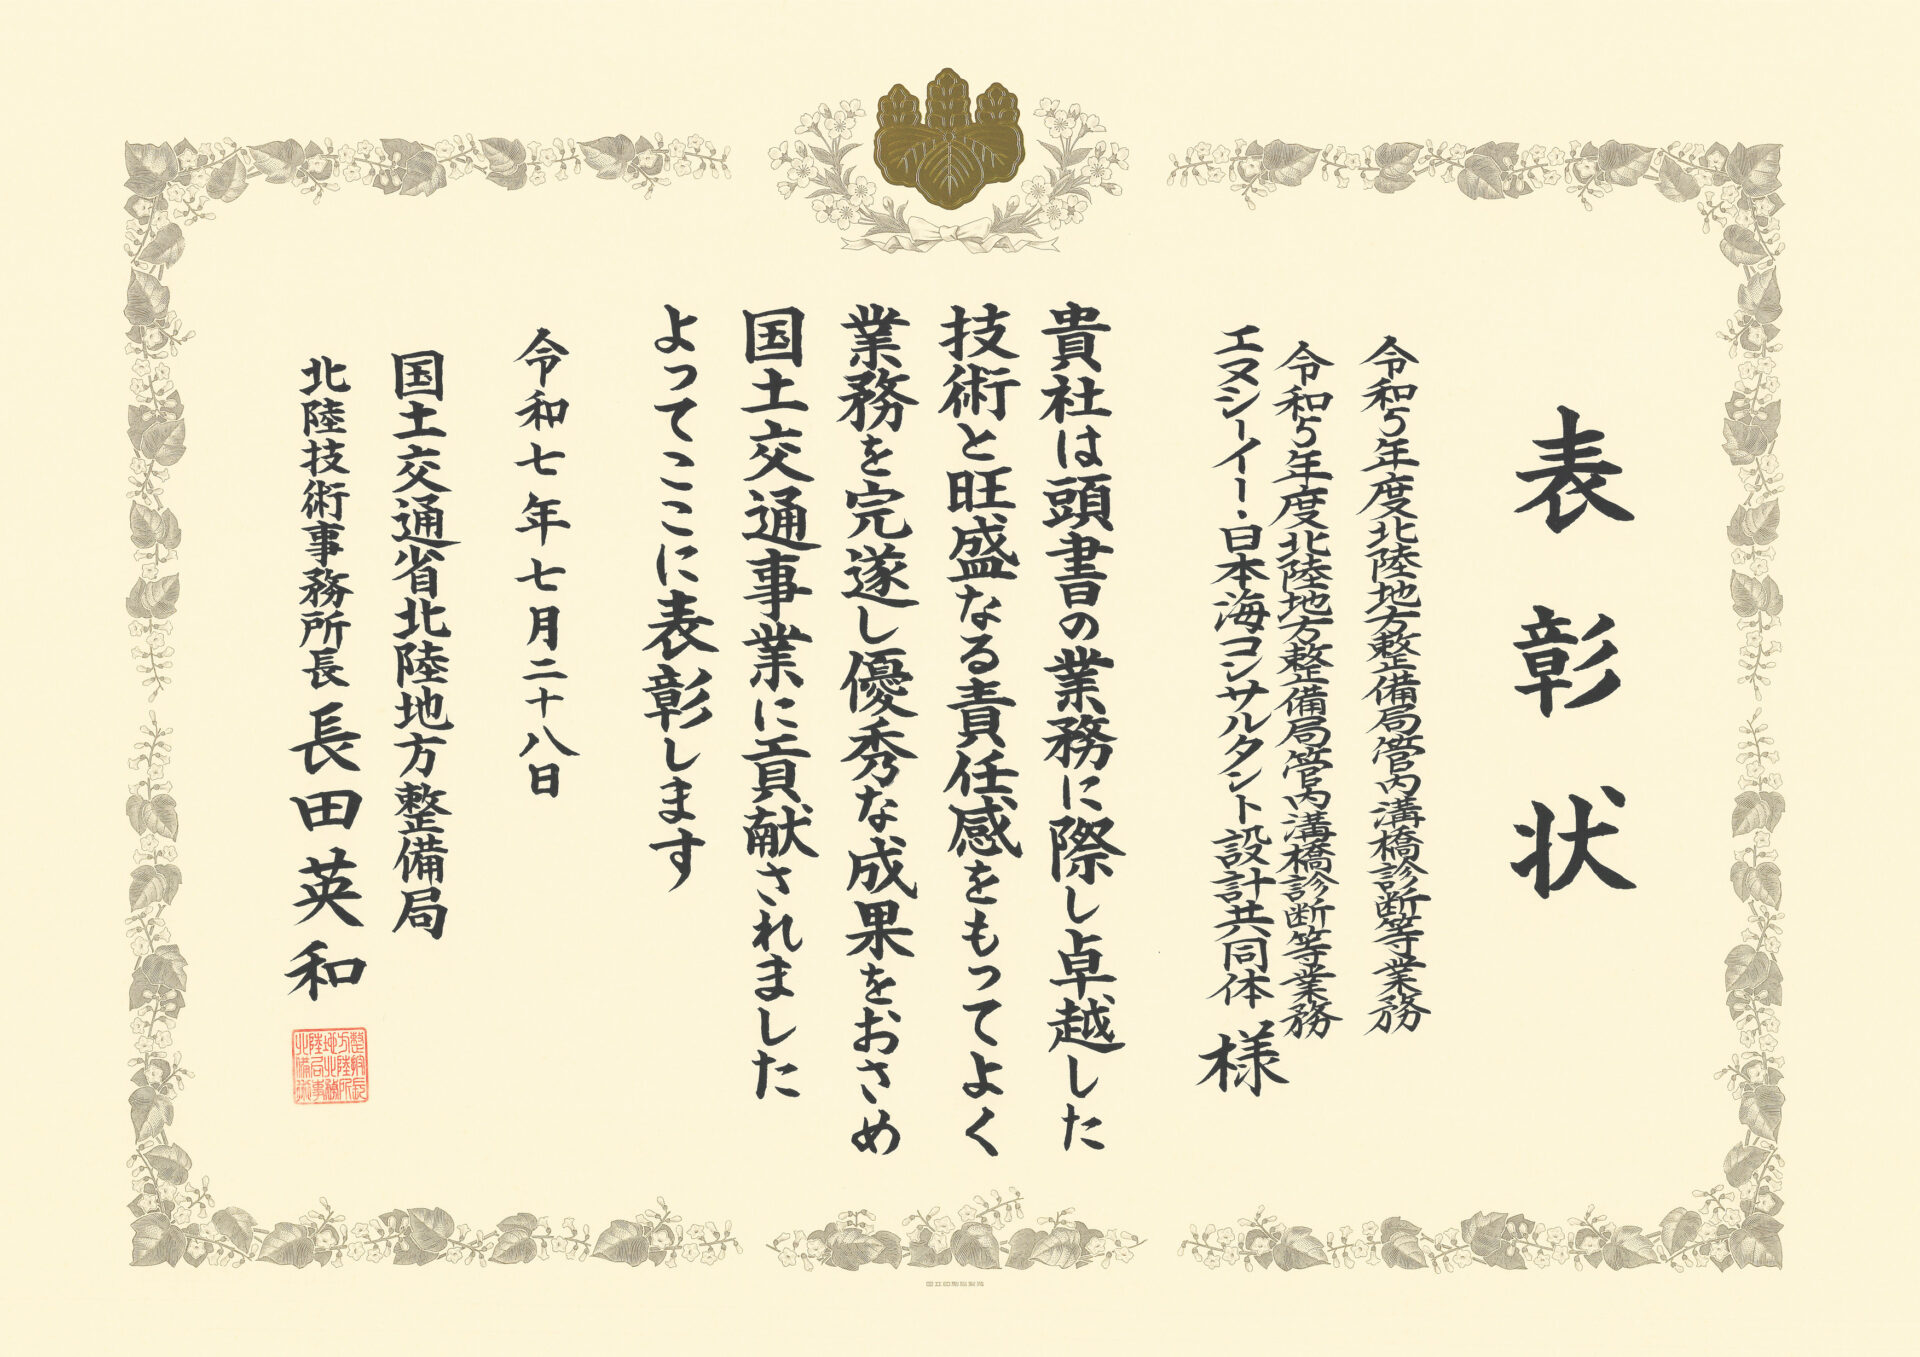 表彰状
令和5年度北陸地方整備局管内溝橋診断等業務
令和5年度北陸地方整備局管内溝橋診断等業務
エヌシーイー・日本海コンサルタント設計共同体 様
貴社は頭書の業務に際し卓越した
技術と旺盛なる責任感をもってよく
業務を完遂し優秀な成果をおさめ
国土交通事業に貢献されました
よってここに表彰します
令和七年七月二十八日
国土交通省北陸地方整備局
北陸技術事務所長 長田英和